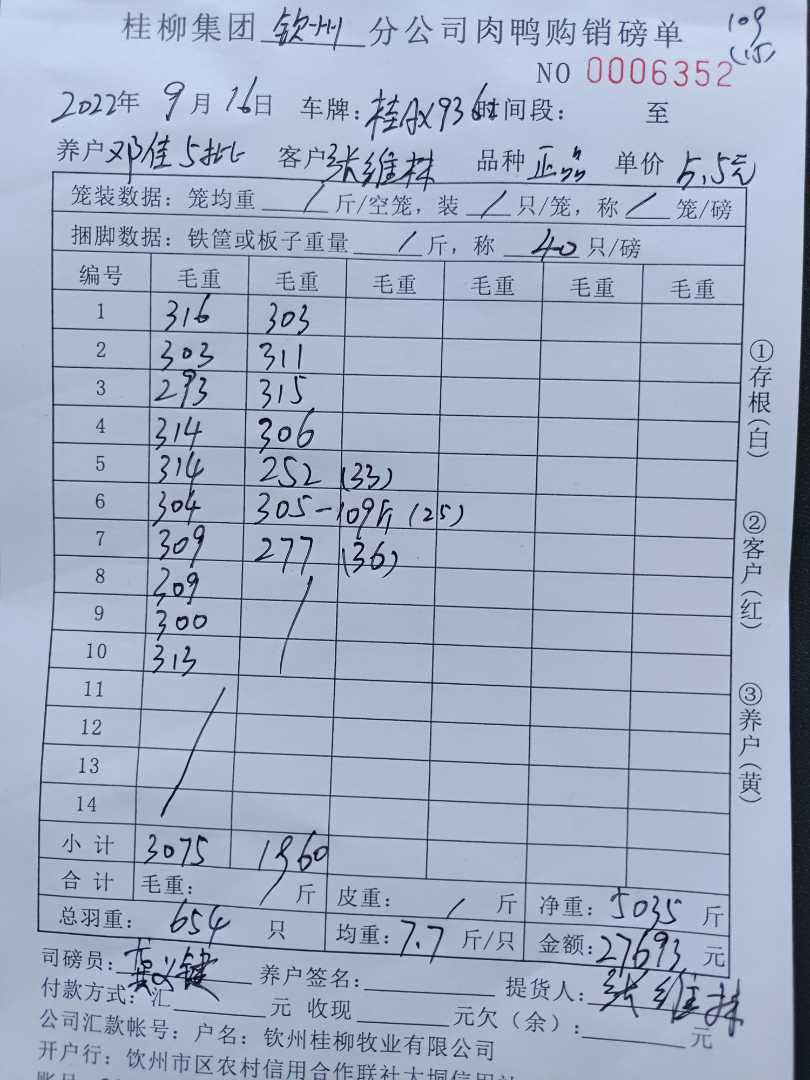 109
(15)
桂柳集团 钦州 分公司肉鸭购销磅单
NO 0006352
2022年 9月16日 车牌: 时间段: 至
养户 邓佳5批 客户 张维林 品种 正品 单价 5.5元
笼装数据: 笼均重 / 斤/空笼, 装 / 只/笼, 称 / 笼/磅
捆脚数据: 铁筐或板子重量 / 斤, 称 40 只/磅
编号 毛重 毛重 毛重 毛重 毛重 毛重
1 316 303
2 303 311
3 293 315
4 314 306
5 314 252 (33)
6 304 305-109斤 (25)
7 309 277 (36)
8 309 /
9 300
10 313
11 /
12
13
14
小计 3075 1960
合计 毛重: / 斤 皮重: / 斤 净重: 5035 斤
总羽重: 654 只 均重: 7.7 斤/只 金额: 27693 元
司磅员: 养户签名: 提货人: 张维林
付款方式: 汇 元 收现 元欠(余): 元
公司汇款帐号: 户名: 钦州桂柳牧业有限公司
开户行: 钦州市区农村信用合作联社大垌信用社
①存根(白)
②客户(红)
③养户(黄)